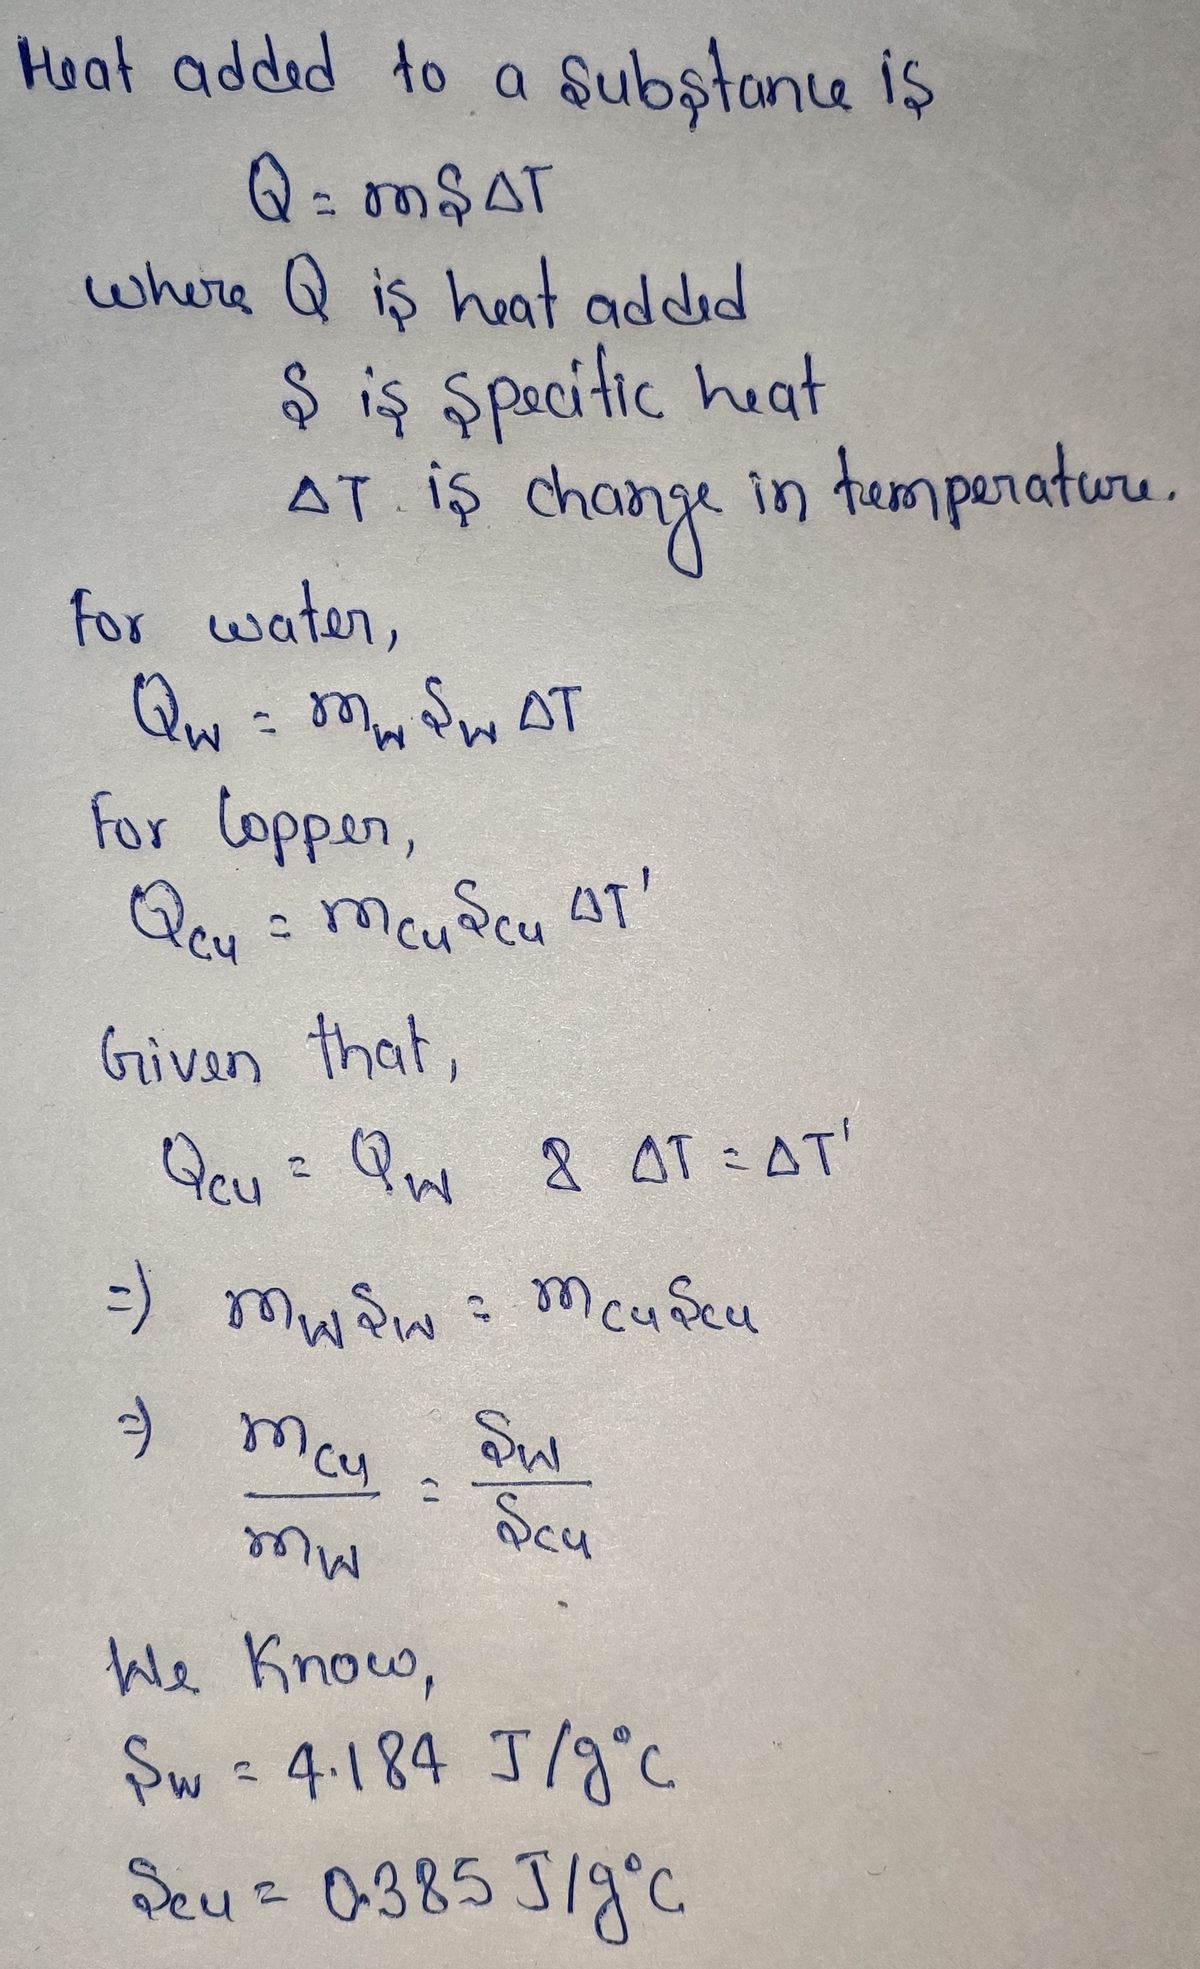 Heat added to a substance is
Q = mSΔT
where Q is heat added
S is specific heat
ΔT is change in temperature.
For water,
Qw = mw Sw ΔT
For Copper,
Qcu = mcu Scu ΔT'
Given that,
Qcu = Qw & ΔT = ΔT'
=) mw Sw = mcu Scu
=) mcu/mw = Sw/Scu
We Know,
Sw = 4.184 J/g°C
Scu = 0.385 J/g°C